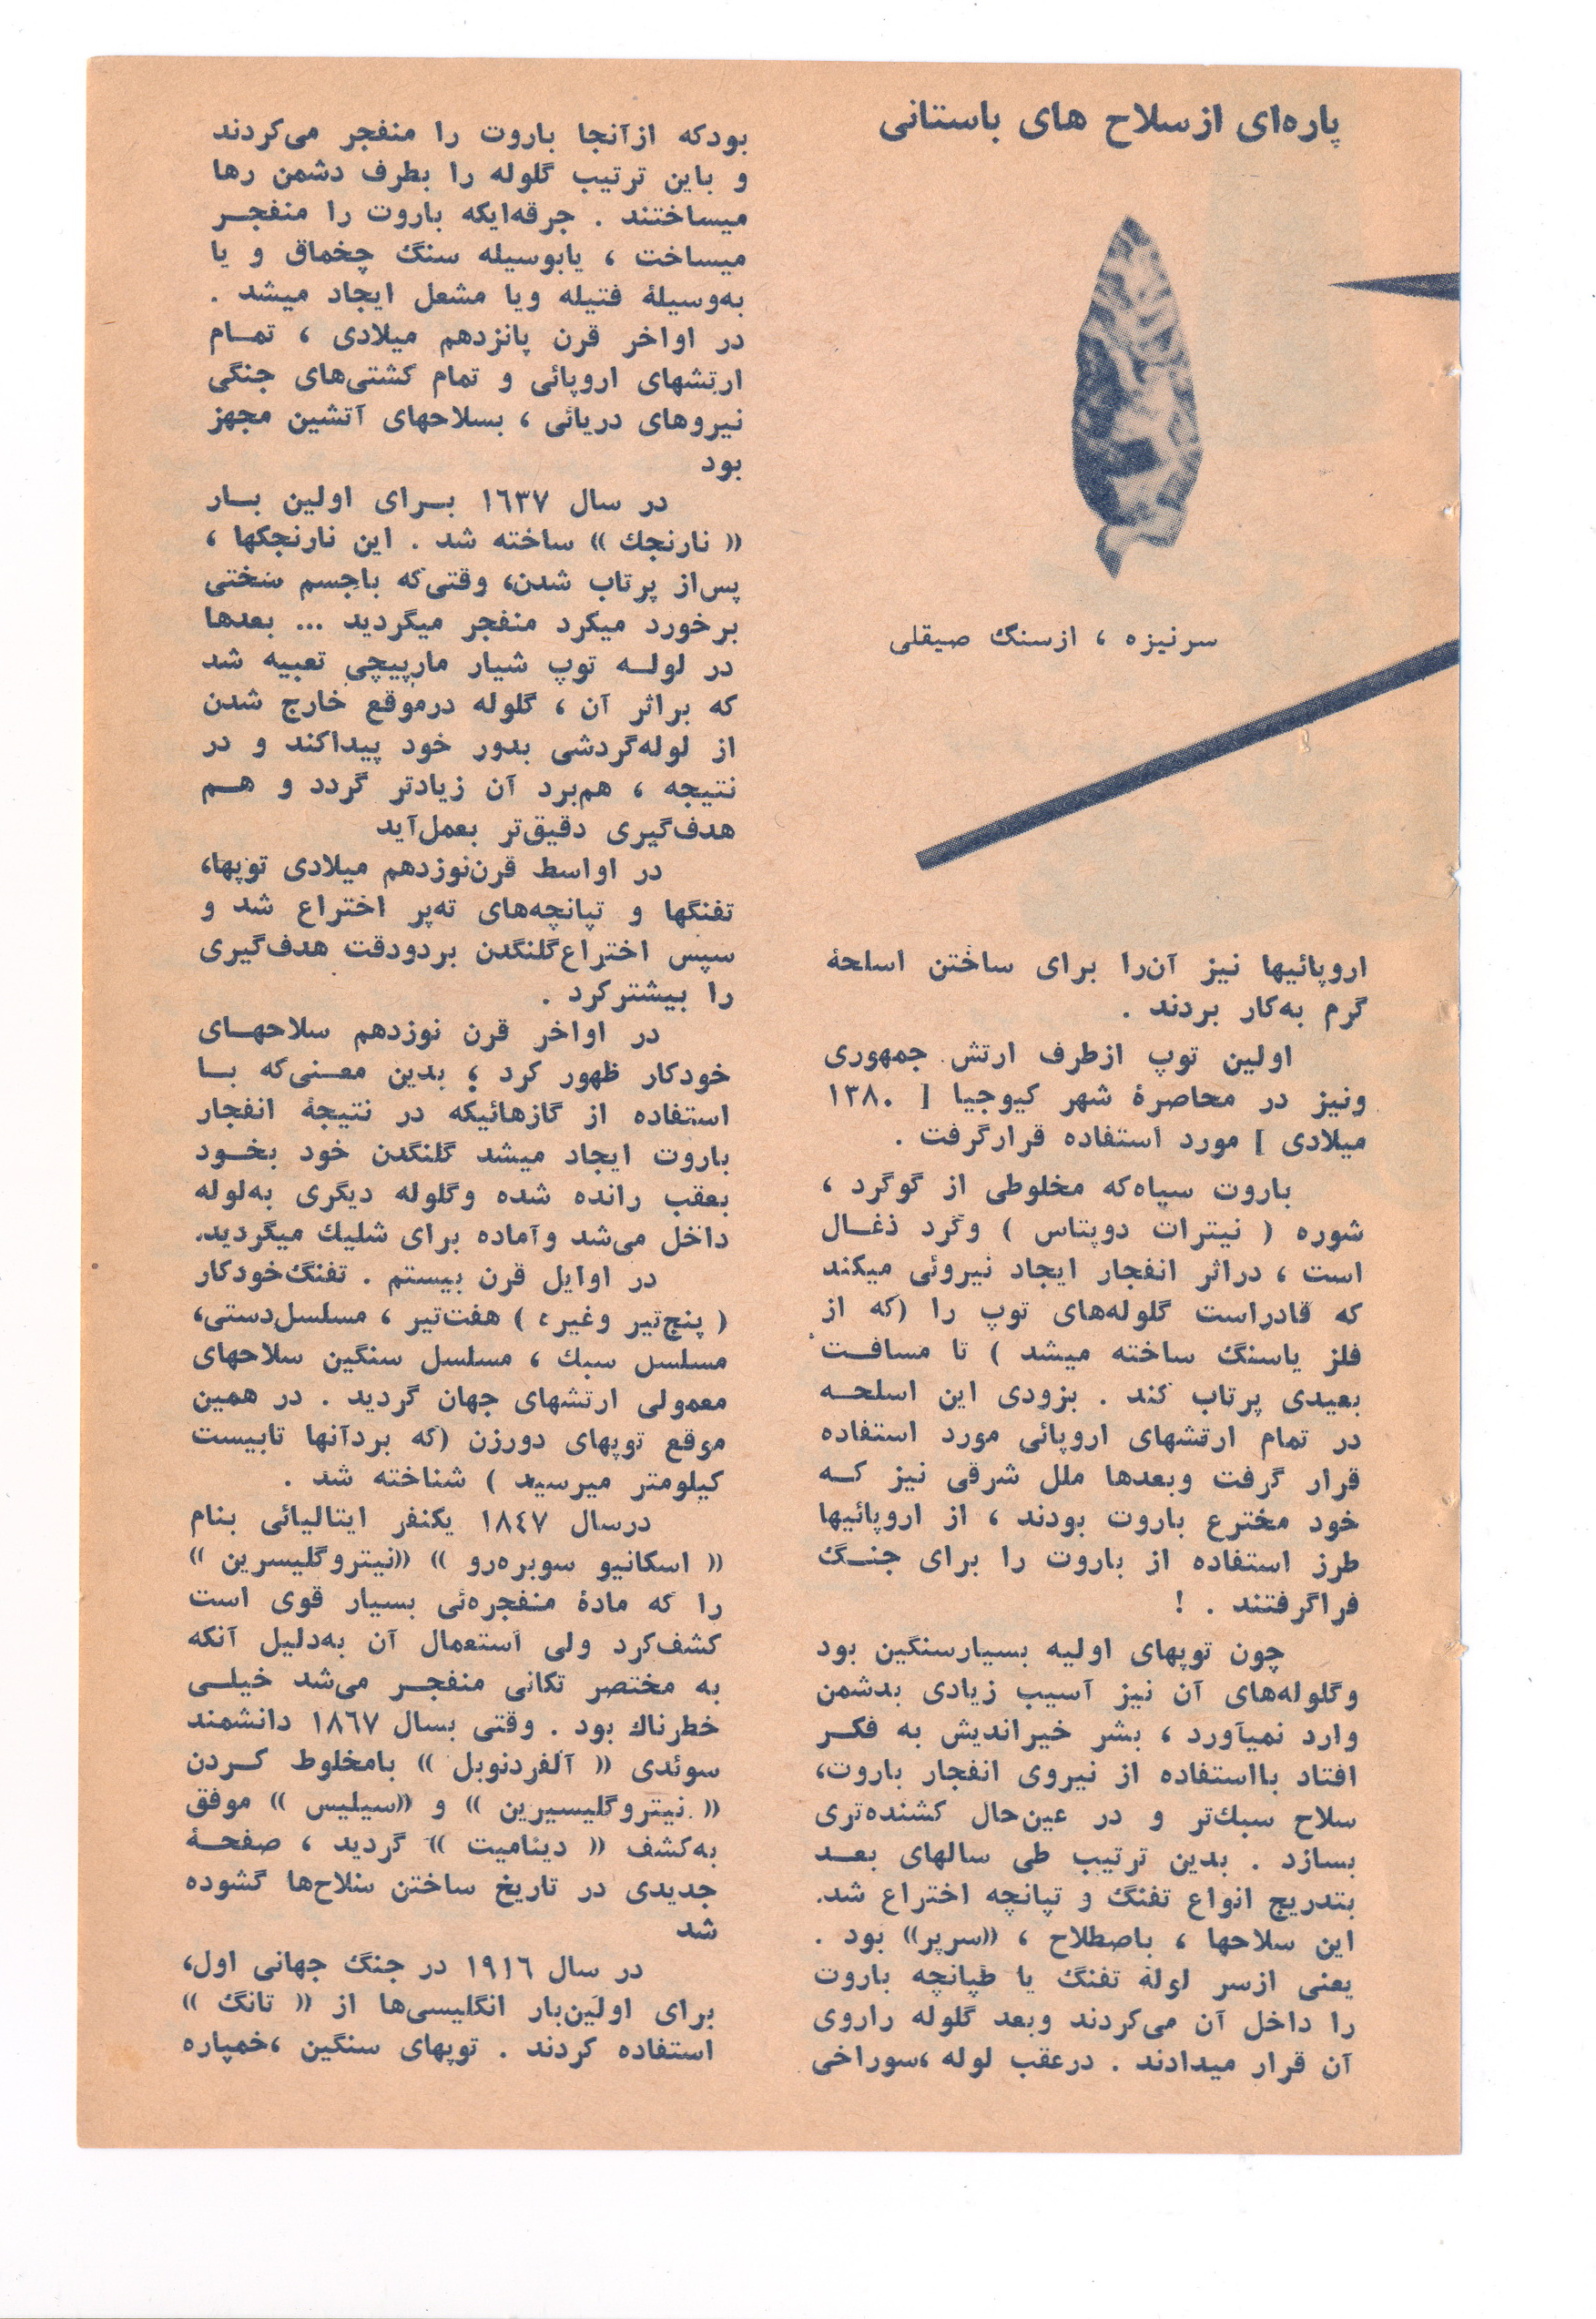 پاره‌ای ازسلاح های باستانی
سرنیزه ، ازسنگ صیقلی
اروپائیها نیز آن‌را برای ساختن اسلحهٔ
گرم به‌کار بردند .
اولین توپ ازطرف ارتش جمهوری
ونیز در محاصرهٔ شهر کیوجیا [ ۱۳۸۰
میلادی ] مورد استفاده قرارگرفت .
باروت سیاه‌که مخلوطی از گوگرد ،
شوره ( نیترات دوپتاس ) وگرد ذغال
است ، دراثر انفجار ایجاد نیروئی میکند
که قادراست گلوله‌های توپ را (که از
فلز یاسنگ ساخته میشد ) تا مسافت
بعیدی پرتاب کند . بزودی این اسلحه
در تمام ارتشهای اروپائی مورد استفاده
قرار گرفت وبعدها ملل شرقی نیز که
خود مخترع باروت بودند ، از اروپائیها
طرز استفاده از باروت را برای جنگ
فراگرفتند . !
چون توپهای اولیه بسیارسنگین بود
وگلوله‌های آن نیز آسیب زیادی بدشمن
وارد نمیآورد ، بشر خیراندیش به فکر
افتاد بااستفاده از نیروی انفجار باروت،
سلاح سبك‌تر و در عین‌حال کشنده‌تری
بسازد . بدین ترتیب طی سالهای بعد
بتدریج انواع تفنگ و تپانچه اختراع شد.
این سلاحها ، باصطلاح ، «سرپر» بود .
یعنی ازسر لولهٔ تفنگ یا طپانچه باروت
را داخل آن می‌کردند وبعد گلوله راروی
آن قرار میدادند . درعقب لوله ،سوراخی
بودکه ازآنجا باروت را منفجر می‌کردند
و باین ترتیب گلوله را بطرف دشمن رها
میساختند . جرقه‌ایکه باروت را منفجر
میساخت ، یابوسیله سنگ چخماق و یا
به‌وسیلهٔ فتیله ویا مشعل ایجاد میشد .
در اواخر قرن پانزدهم میلادی ، تمام
ارتشهای اروپائی و تمام کشتی‌های جنگی
نیروهای دریائی ، بسلاحهای آتشین مجهز
بود
در سال ۱٦۳۷ برای اولین بار
« نارنجك » ساخته شد . این نارنجکها ،
پس‌از پرتاب شدن، وقتی‌که باجسم سختی
برخورد میکرد منفجر میگردید ... بعدها
در لوله توپ شیار مارپیچی تعبیه شد
که براثر آن ، گلوله درموقع خارج شدن
از لوله‌گردشی بدور خود پیداکند و در
نتیجه ، هم‌برد آن زیادتر گردد و هم
هدف‌گیری دقیق‌تر بعمل‌آید
در اواسط قرن‌نوزدهم میلادی توپها،
تفنگها و تپانچه‌های ته‌پر اختراع شد و
سپس اختراع‌گلنگدن بردودقت هدف‌گیری
را بیشترکرد .
در اواخر قرن نوزدهم سلاحهای
خودکار ظهور کرد ؛ بدین معنی‌که با
استفاده از گازهائیکه در نتیجهٔ انفجار
باروت ایجاد میشد گلنگدن خود بخود
بعقب رانده شده وگلوله دیگری به‌لوله
داخل می‌شد وآماده برای شلیك میگردید.
در اوایل قرن بیستم . تفنگ‌خودکار
( پنج‌تیر وغیره ) هفت‌تیر ، مسلسل‌دستی،
مسلسل سبك ، مسلسل سنگین سلاحهای
معمولی ارتشهای جهان گردید . در همین
موقع توپهای دورزن (که بردآنها تابیست
کیلومتر میرسید ) شناخته شد .
درسال ۱۸٤۷ یکنفر ایتالیائی بنام
« اسکانیو سوبره‌رو » «نیتروگلیسرین »
را که مادهٔ منفجره‌ئی بسیار قوی است
کشف‌کرد ولی استعمال آن به‌دلیل آنکه
به مختصر تکانی منفجر می‌شد خیلی
خطرناك بود . وقتی بسال ۱۸٦۷ دانشمند
سوئدی « آلفردنوبل » بامخلوط کردن
« نیتروگلیسیرین » و «سیلیس » موفق
به‌کشف « دینامیت » گردید ، صفحهٔ
جدیدی در تاریخ ساختن سلاح‌ها گشوده
شد
در سال ۱۹۱٦ در جنگ جهانی اول،
برای اولین‌بار انگلیسی‌ها از « تانگ »
استفاده کردند . توپهای سنگین ،خمپاره